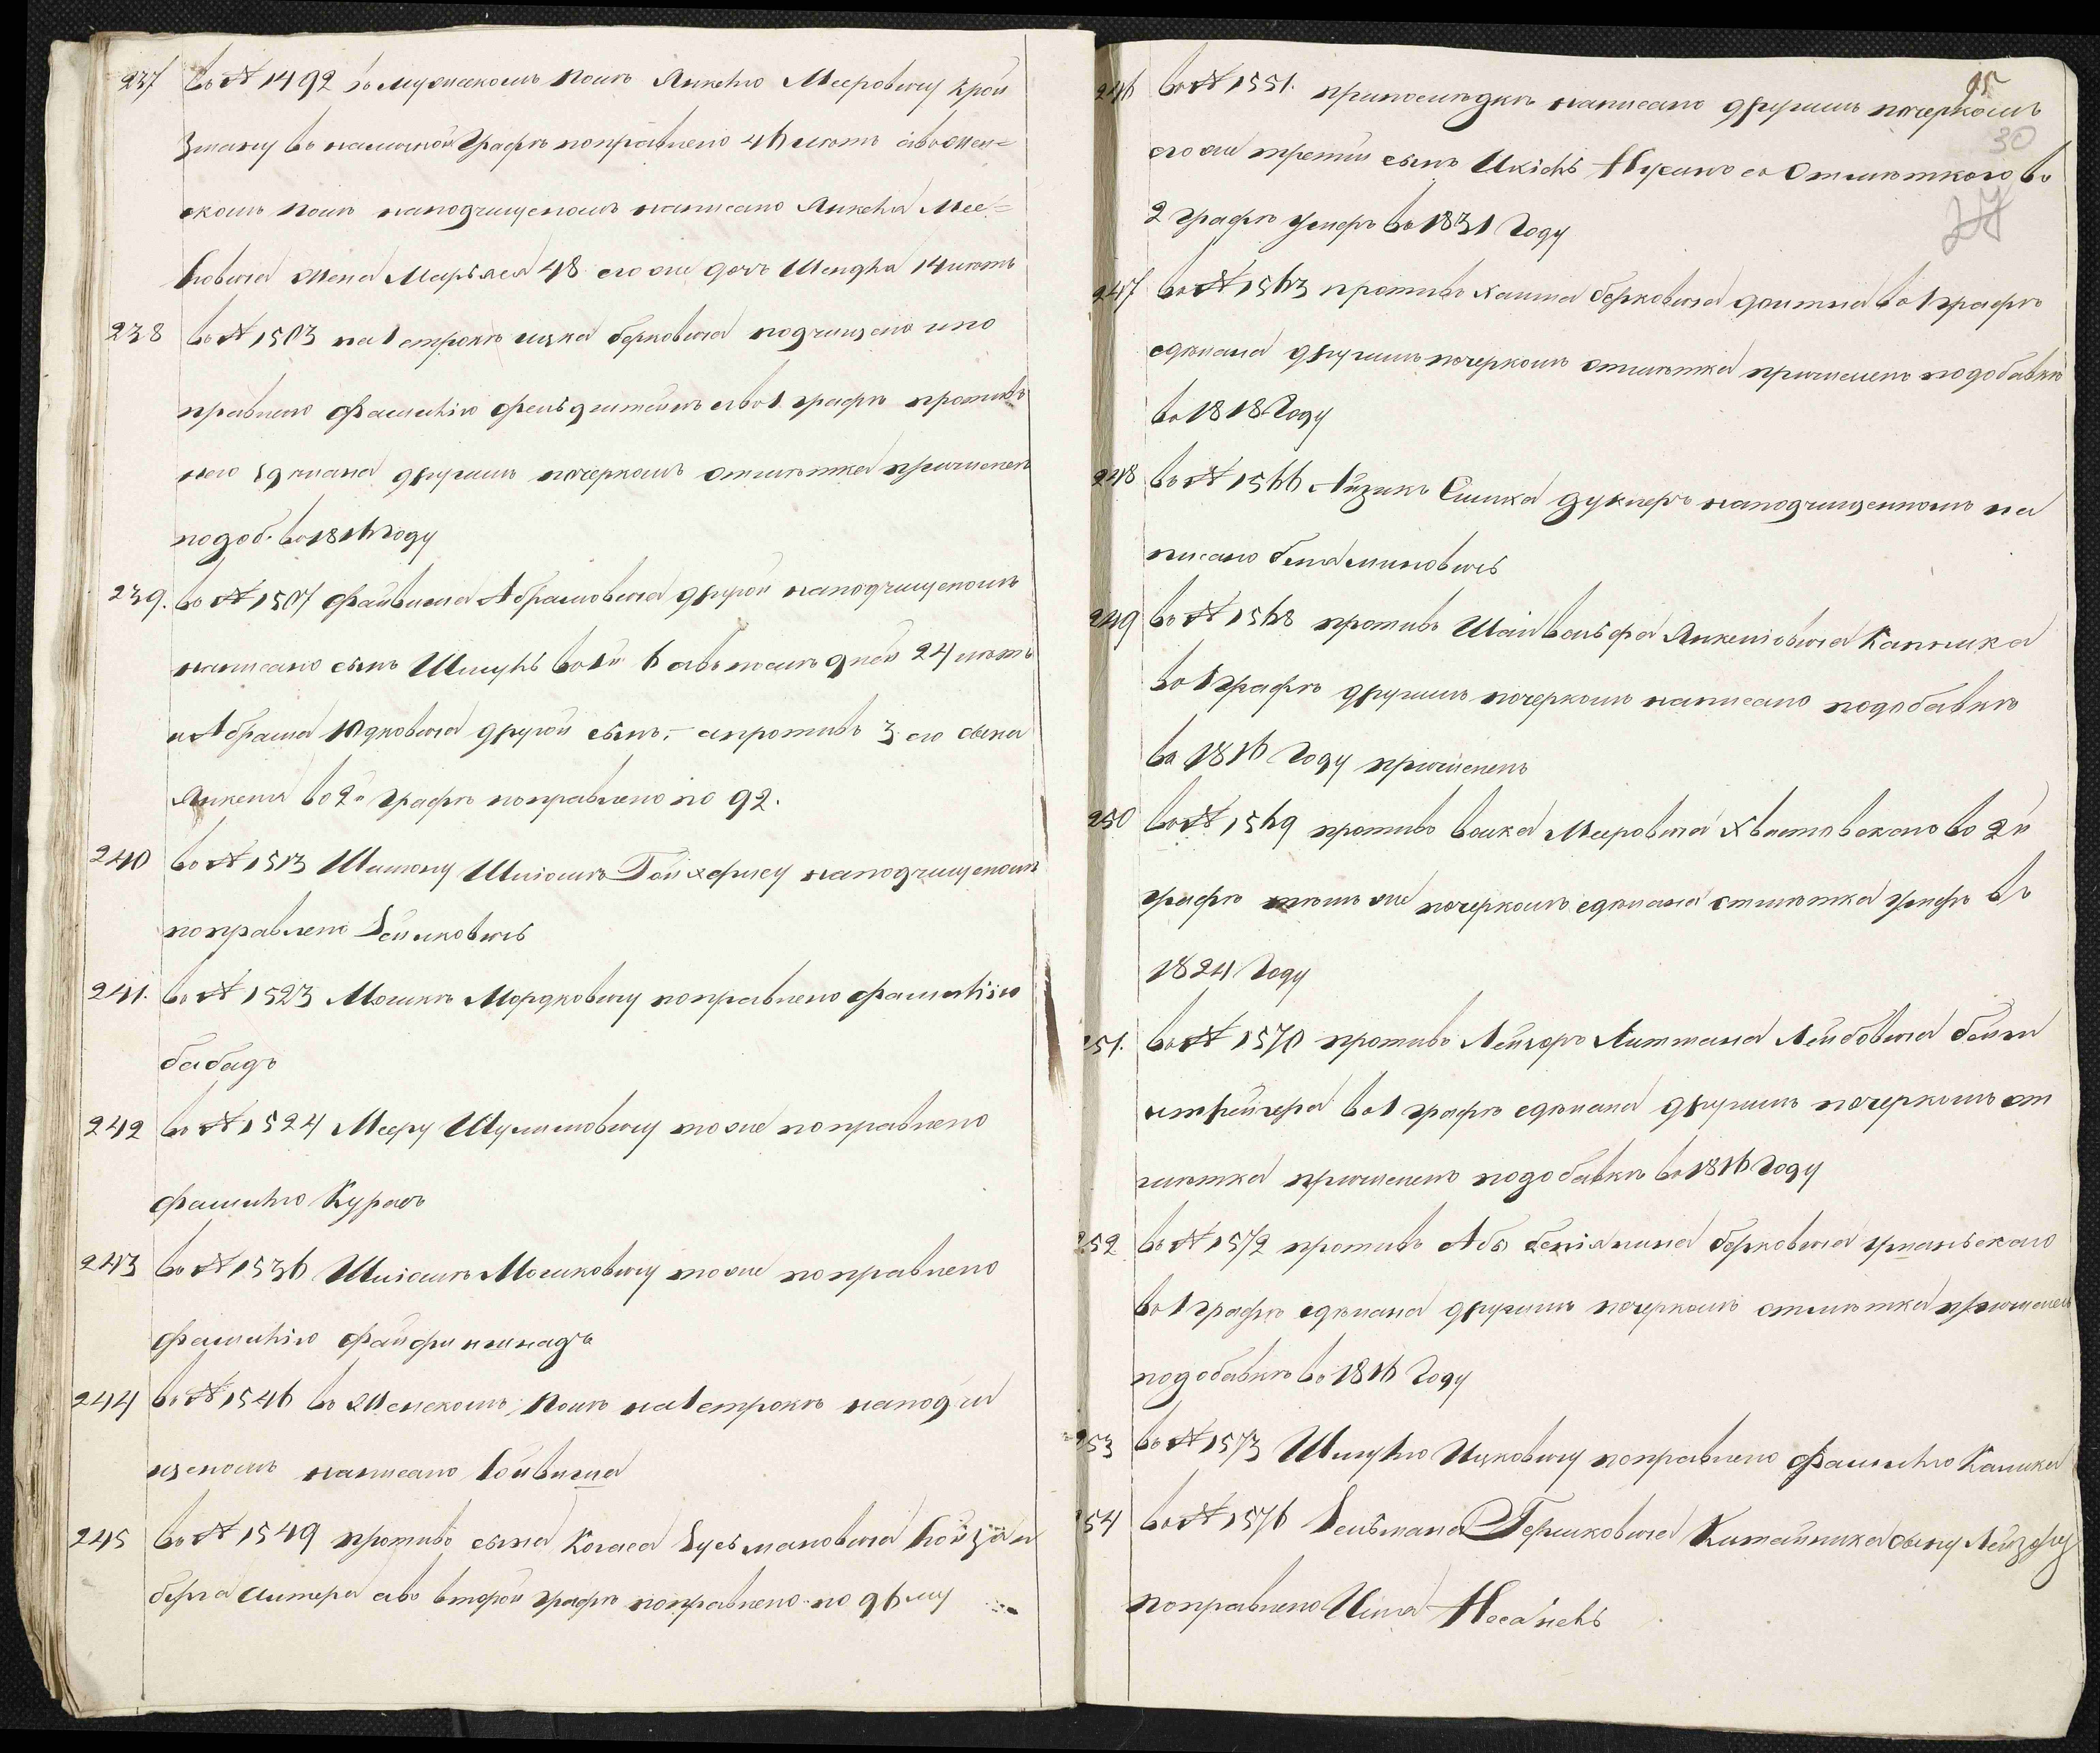 237 въ № 1492 въ мужескомъ полѣ Янкелю Мееровичу Крой
зману въ наличной графѣ поправлено 46 лѣтъ а въ жен=
скомъ полѣ наподчищеномъ написано Янкеля Мее=
ровича жена Марьяся 48 его же дочь Шендля 14 лѣтъ
238 въ № 1503 на 1 строкѣ Ицка Берковича подчищено и по
правлено фамилію Фельдштейнъ а во 1 графѣ противъ
него зделана другимъ почеркомъ отмѣтка причисленъ
подоб. въ 1816 году
239. въ № 1507 Файвиша Абрамовича другой наподчищеномъ
написано сынъ Шмуль во 1й 6 а въ новѣ дней 24 лѣтъ
и Абрама Юдковича другой сынъ, – а противъ 3 его сына
Янкеля во 2й графѣ поправлено по 92.
240 въ № 1513 Шимону Шліомѣ наподчищеномъ
поправлено Зейликовичь
241. въ № 1523 Мошкѣ Мордковичу поправлено фамилію
Бабадъ
242 въ № 1524 Мееру Шулимовичу тоже поправлено
фамилію Курасъ
243 въ № 1536 Шліомѣ Мошковичу тоже поправлено
фамилію
244 въ № 1546 въ женскомъ полѣ на 1 строкѣ наподчи
щеномъ написано
245 въ № 1549 противъ сына Когаса Зусьмановича Ройзен
берга Литера а во второй графѣ поправлено по 96му
95
30
27
246 въ № 1551. припоследкѣ написано другимъ почеркомъ
его же третій сынъ Икіель Нусинъ со отмѣткою во
2 графѣ умеръ въ 1831 году
247 въ № 1563 противъ Хаима Берковича во 1 графѣ
сделана другимъ почеркомъ отмѣтка причисленъ подобавкѣ
въ 1818 году
248 въ № 1566 Айзикъ Симха Дуклеръ наподчищенномъ на
писано Беніаминовичь
249 въ № 1568 противъ Шаи Вольфа Янкелiовича Капника
во 1 графѣ другимъ почеркомъ написано подобавкѣ
въ 1816 году причисленъ
250 въ № 1569 противъ Волка Мееровича Хвастовскаго во 2й
графѣ тѣмъ же почеркомъ сделана отмѣтка умеръ въ
1824 году
251. въ № 1570 противъ Лейзоръ Литмана Лейбовича
штрейгера во 1 графѣ сделана другимъ почеркомъ от
мѣтка причисленъ подобавкѣ въ 1816 году
252 въ № 1572 противъ Абы Беніямина Берковича Уманьскаго
во 1 графѣ сделана другимъ почеркомъ отмѣтка причисленъ
подобавкѣ въ 1816 году
253 въ № 1573 Шмулю Ицковичу поправлено фамилію Калика
254 въ № 1576 Зельмана Гершковича Китайника сыну Лейзеру
поправлено Имя Носанель